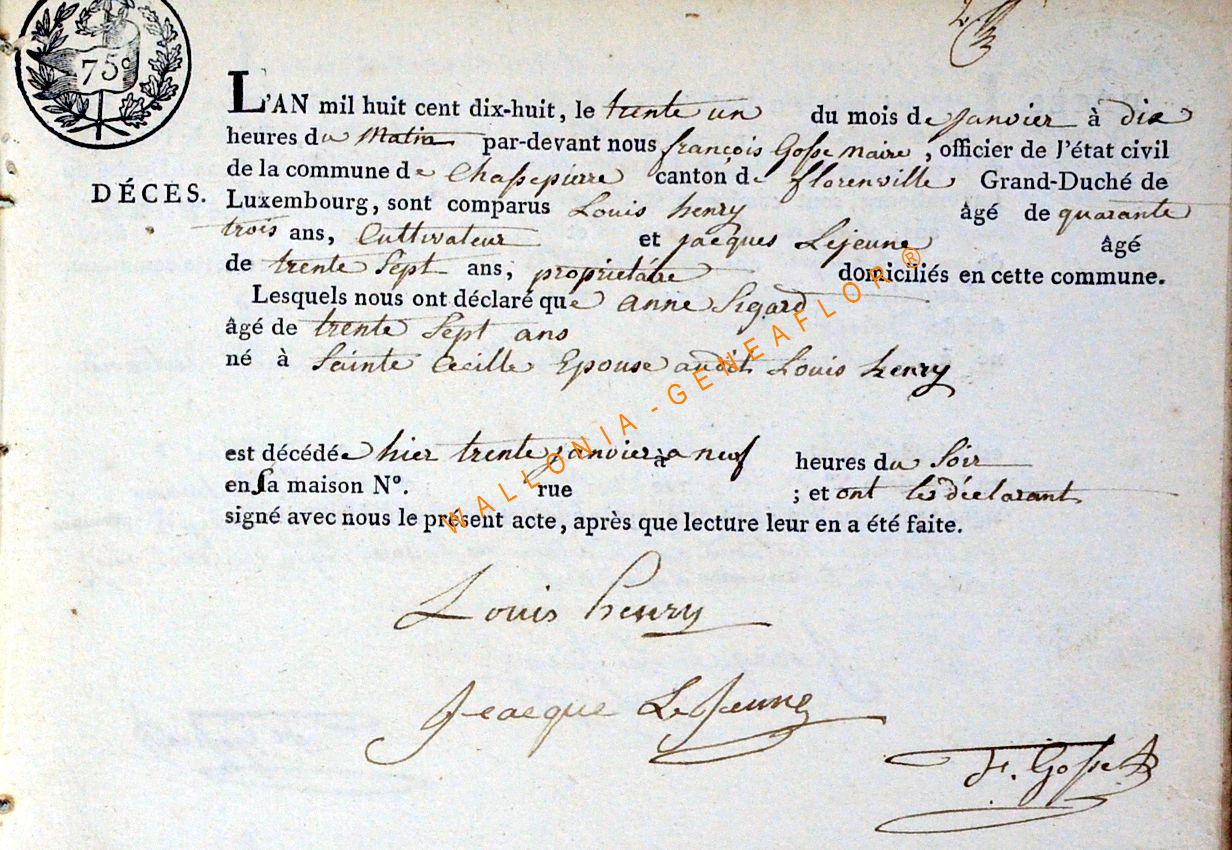 75c
L'AN mil huit cent dix-huit, le trente un du mois de janvier à dix
heures du Matin par-devant nous françois Gosse Maire, officier de l'état civil
de la commune de Chassepierre canton de florenville Grand-Duché de
DÉCES.
Luxembourg, sont comparus Louis henry âgé de quarante
trois ans, Cultivateur et jacques Lejeune âgé
de trente Sept ans, propriétaire domiciliés en cette commune.
Lesquels nous ont déclaré que anne Sigard
âgé de trente Sept ans
né à Sainte Cecille Epouse audit Louis henry
est décédée hier trente janvier à a neuf heures du Soir
en sa maison N°. rue ; et ont les déclarant
signé avec nous le présent acte, après que lecture leur en a été faite.
WALLONIA - GENEAFLOR ®
Louis henry
Jeacque LeJeune
F. Gosse